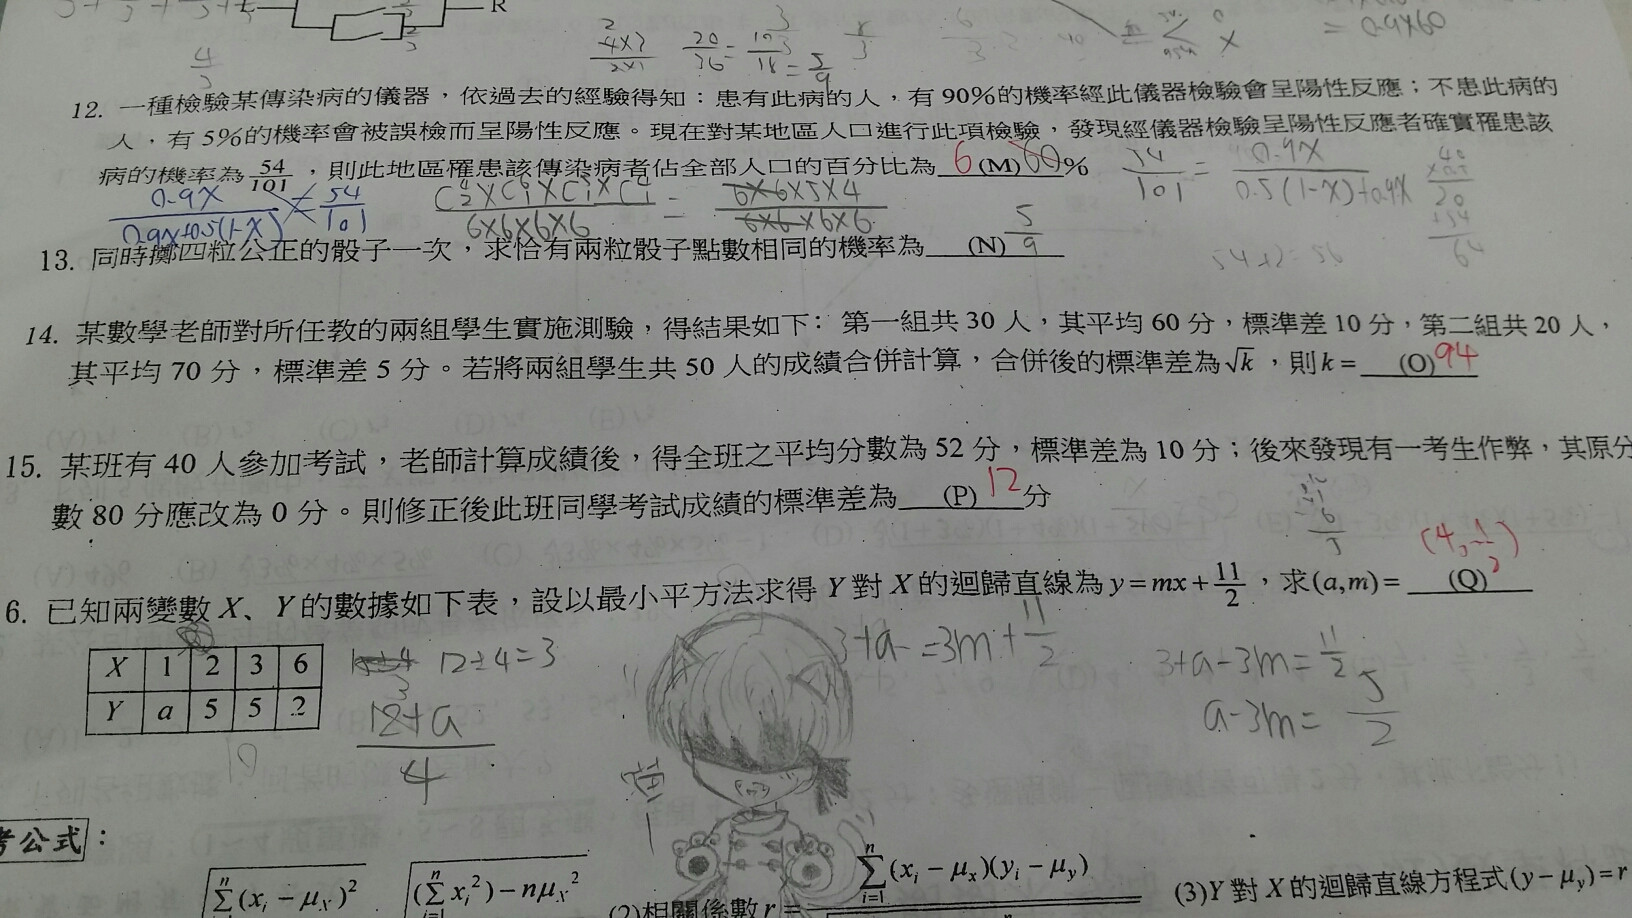 R
4/3
4×2/2×1 20/36 = 10/18 = 5/9
= 0.9×60
12. 一種檢驗某傳染病的儀器，依過去的經驗得知：患有此病的人，有 90%的機率經此儀器檢驗會呈陽性反應；不患此病的
人，有 5%的機率會被誤檢而呈陽性反應。現在對某地區人口進行此項檢驗，發現經儀器檢驗呈陽性反應者確實罹患該
病的機率為 54/101，則此地區罹患該傳染病者佔全部人口的百分比為 6 (M) 60 %
54/101 = 0.9X/0.5(1-X)+0.9X
0.9X/0.9X+0.5(1-X) = 54/101
6×6×5×4/6×6×6×6
13. 同時擲四粒公正的骰子一次，求恰有兩粒骰子點數相同的機率為 (N) 5/9
14. 某數學老師對所任教的兩組學生實施測驗，得結果如下：第一組共 30 人，其平均 60 分，標準差 10 分，第二組共 20 人，
其平均 70 分，標準差 5 分。若將兩組學生共 50 人的成績合併計算，合併後的標準差為√k，則 k = (O) 94
15. 某班有 40 人參加考試，老師計算成績後，得全班之平均分數為 52 分，標準差為 10 分；後來發現有一考生作弊，其原分
數 80 分應改為 0 分。則修正後此班同學考試成績的標準差為 (P) 12 分
6. 已知兩變數 X、Y 的數據如下表，設以最小平方法求得 Y 對 X 的迴歸直線為 y = mx + 11/2，求(a,m) = (Q)
X 1 2 3 6
Y a 5 5 2
12÷4=3
12+a/4
3+a = 3m + 11/2
3+a-3m = 11/2
a-3m = 5/2
考公式：
√Σ(xᵢ − μₓ)² √(Σxᵢ²) − nμₓ²
(2)相關係數 r = Σ(xᵢ − μₓ)(yᵢ − μᵧ)
(3)Y 對 X 的迴歸直線方程式(y − μᵧ) = r